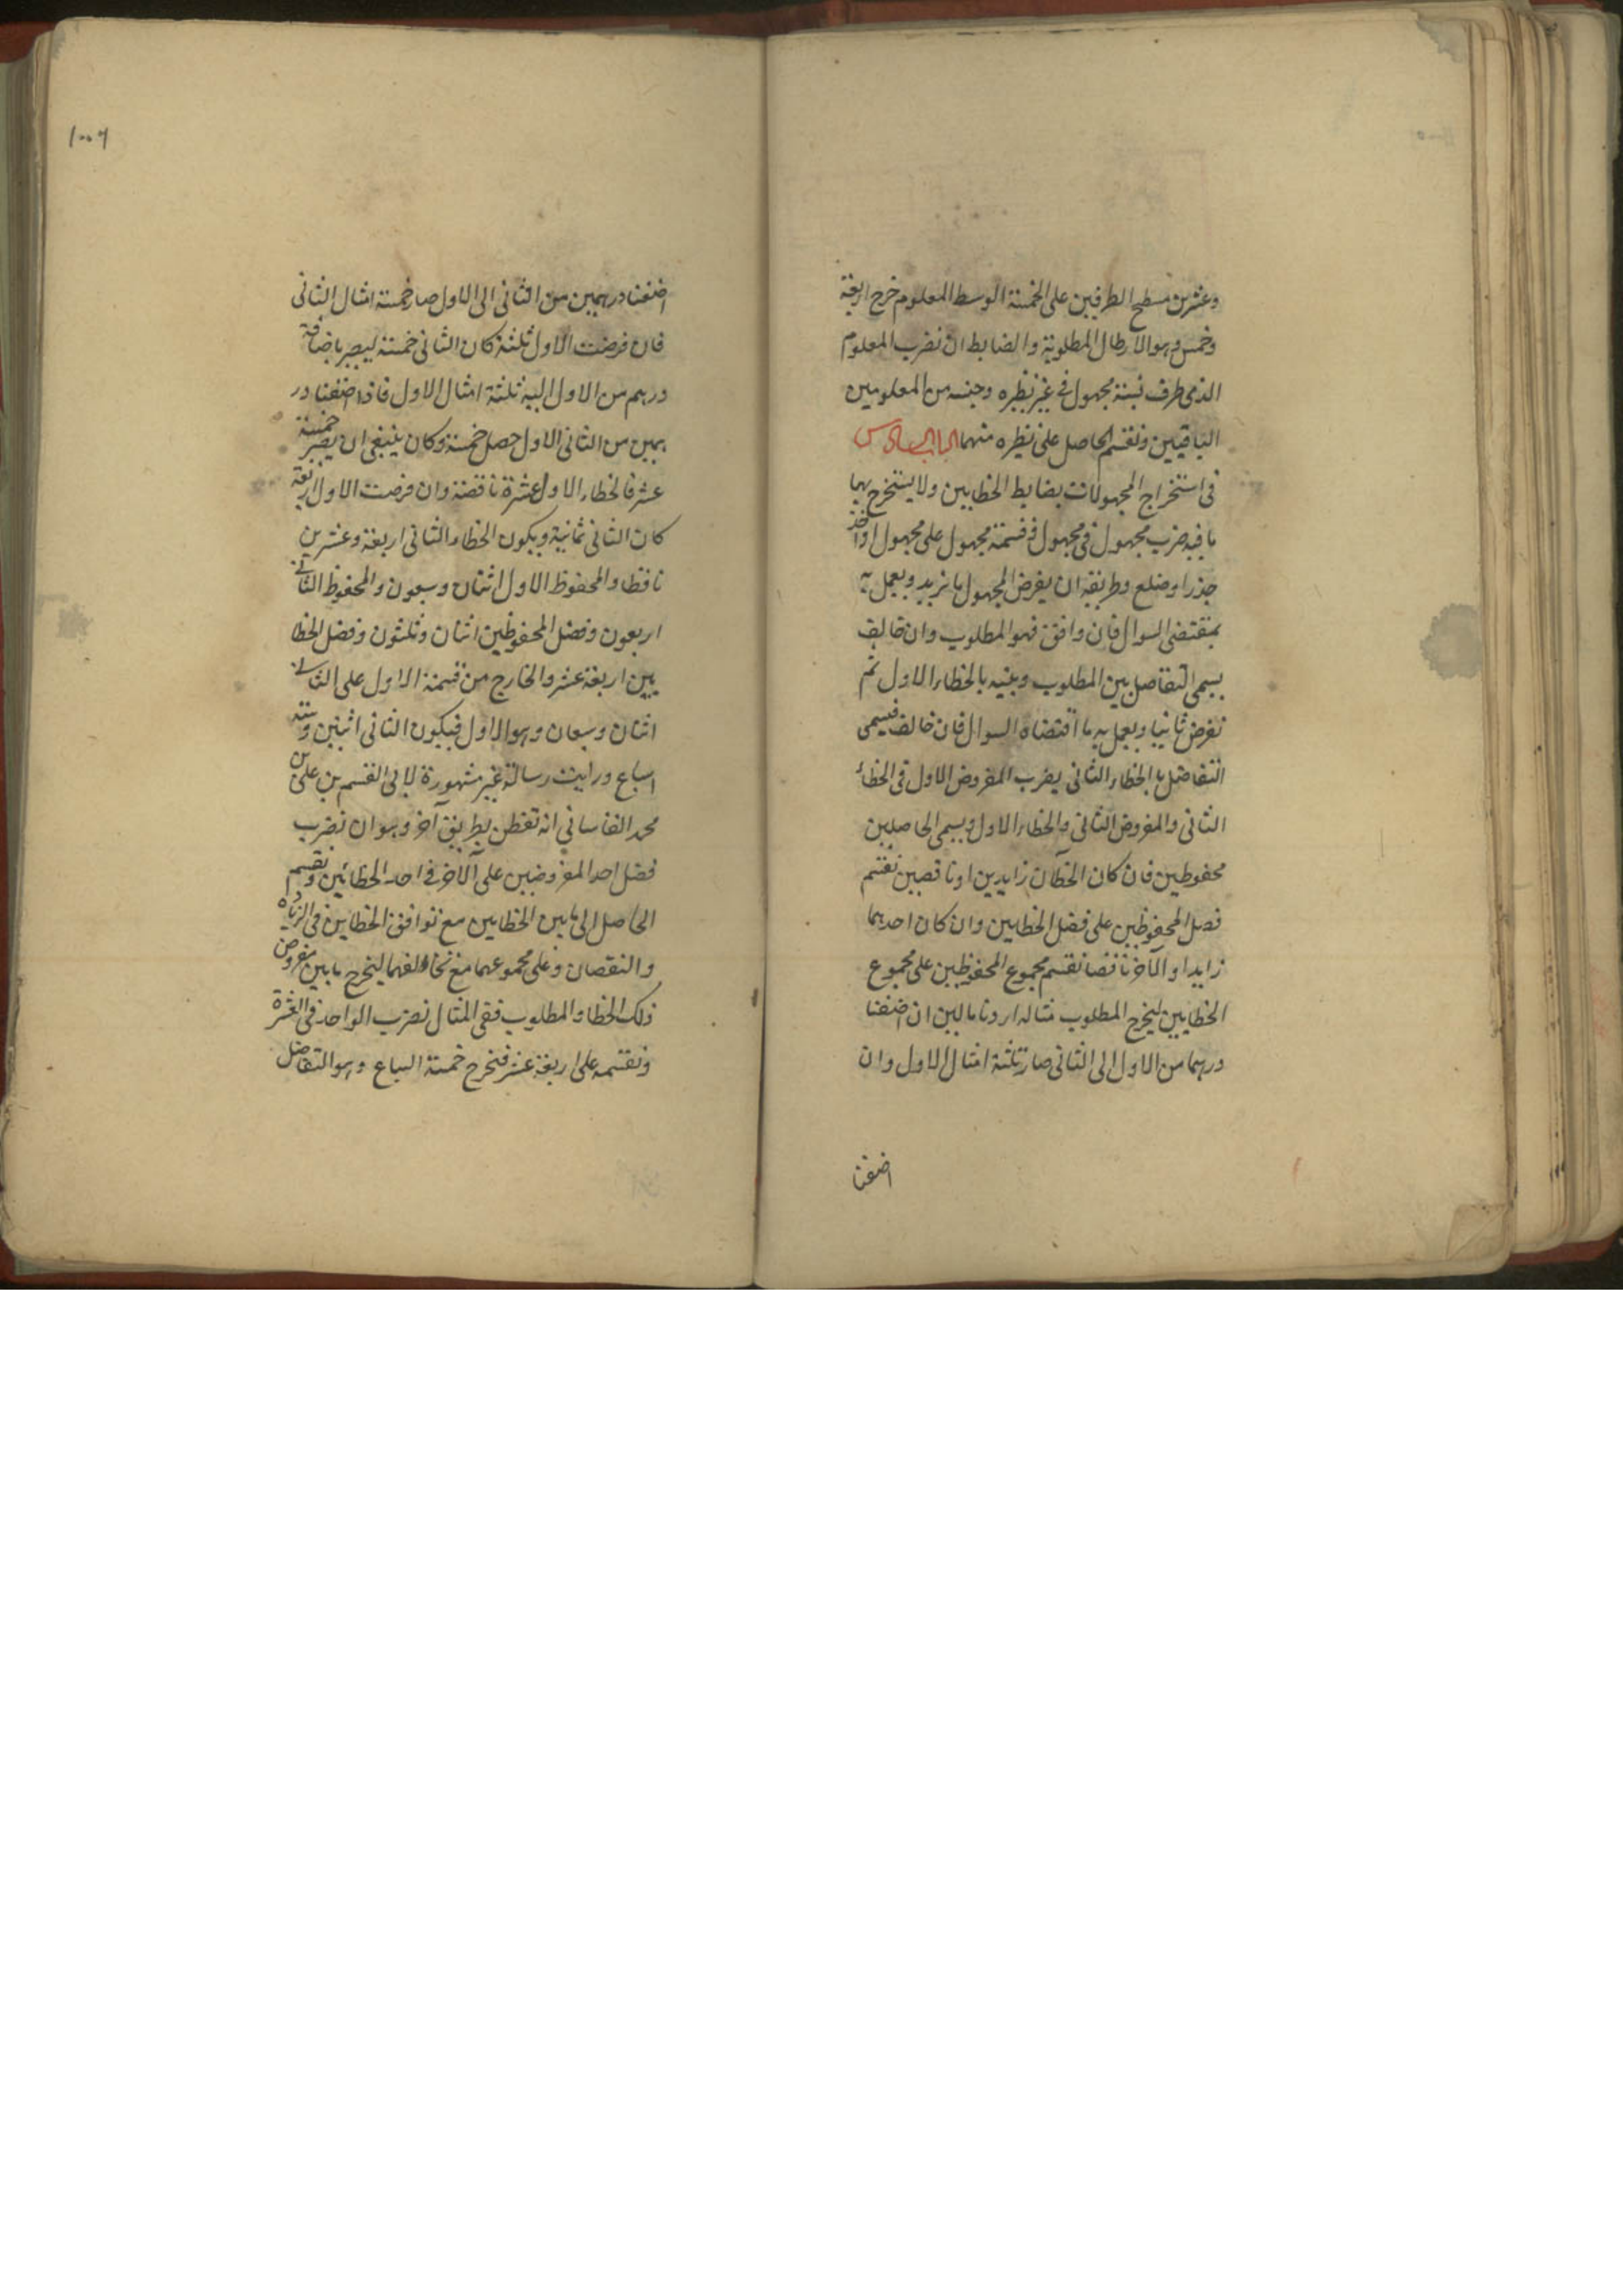 وعشرين مسطح الطرفين على الخمسة الوسط المعلوم خرج اربعة
وخمس وهو الارطال المطلوبة والضابط ان نضرب المعلوم
الذى طرف نسبة مجهول فى غير نظيره وجنسه من المعلومين
الباقيين ونقسم الحاصل على نظيره منهما الباب السادس
فى استخراج المجهولات بضابط الخطايين ولا يستخرج بهما
ما فيه ضرب مجهول فى مجهول او قسمة مجهول على مجهول او اخذ
جذر او ضلع وطريقه ان يفرض المجهول ما نريد ويعمل به
بمقتضى السوال فان وافق فهو المطلوب وان خالف
يسمى التفاضل بين المطلوب وبينه بالخطاء الاول ثم
نفرض ثانيا ويعمل به ما اقتضاه السوال فان خالف فيسمى
التفاضل بالخطاء الثانى يضرب المفروض الاول فى الخطاء
الثانى والمفروض الثانى والخطاء الاول ويسمى الحاصلين
محفوظين فان كان الخطآن زايدين او ناقصين نقسم
فضل المحفوظين على فضل الخطايين وان كان احدهما
زايدا والآخر ناقصا نقسم مجموع المحفوظين على مجموع
الخطايين ليخرج المطلوب مثاله اردنا مالين ان اضفنا
درهما من الاول الى الثانى صار ثلثة امثال الاول وان
اضفنا
١٠٠٦
اضفنا درهمين من الثانى الى الاول صار خمسة امثال الثانى
فان فرضت الاول ثلثة كان الثانى خمسة ليصير باضافة
درهم من الاول اليه ثلثة امثال الاول فاذا اضفنا در
همين من الثانى الاول حصل خمسة وكان ينبغى ان يصير خمسة
عشر فالخطاء الاول عشرة ناقصة وان فرضت الاول اربعة
كان الثانى ثمانية ويكون الخطاء الثانى اربعة وعشرين
ناقصا والمحفوظ الاول اثنان وسبعون والمحفوظ الثانى
اربعون وفضل المحفوظين اثنان وثلثون وفضل الخطا
يين اربعة عشر والخارج من قسمة الاول على الثانى
اثنان وسبعان وهو الاول فيكون الثانى اثنين وستة
اسباع ورايت رسالة غير مشهورة لابى القسم بن على بن
محمد الفاسانى انه تفطن بطريق آخر وهو ان نضرب
فضل احد المفروضين على الآخر فى احد الخطائين ونقسم
الحاصل الى ما بين الخطايين مع توافق الخطايين فى الزيادة
والنقصان وعلى مجموعهما مع تخالفهما ليخرج ما بين مفروض
ذلك الخطا والمطلوب ففى المثال نضرب الواحد فى العشرة
ونقسمه على اربعة عشر فنخرج خمسة اسباع وهو التفاضل